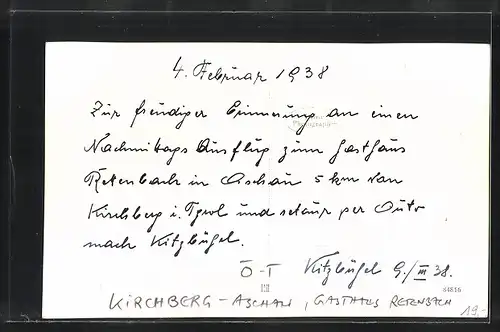 4. Februar 1938
Zur freudiger Erinnerung an einen
Nachmittags Ausflug zum Gasthaus
Retenbach in Aschau 5 km von
Kirchberg i. Tyrol und retaur per Auto
nach Kitzbühel.
Ö-T Kitzbühel 9./III 38.
84816
KIRCHBERG - ASCHAU, GASTHAUS RETENBACH
19.-